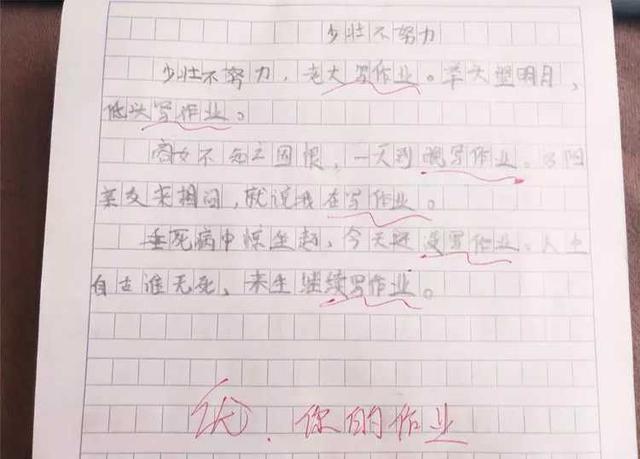 少壮不努力
少壮不努力，老大写作业。举头望明月，
低头写作业。
商女不知亡国恨，一天到晚写作业。洛阳
亲友来相问，就说我在写作业。
垂死病中惊坐起，今天还没写作业。人生
自古谁无死，来生继续写作业。
优，你的作业